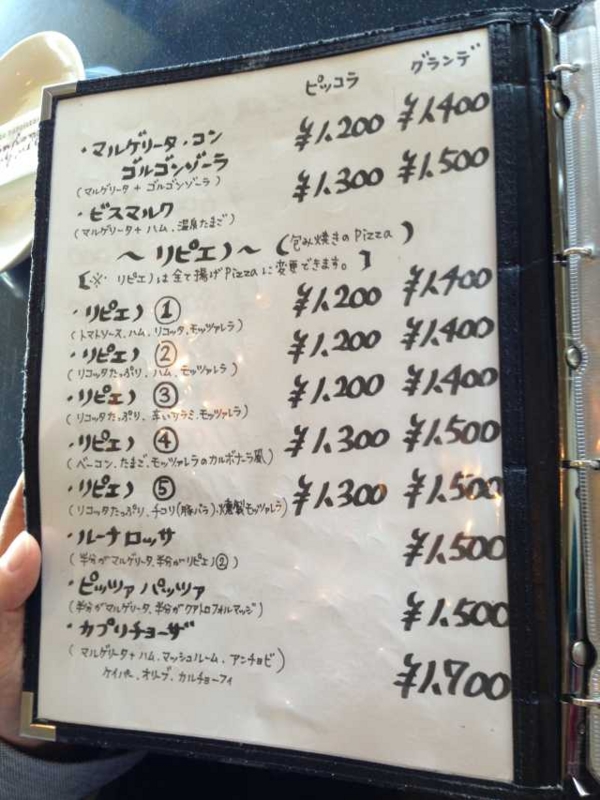 ピッコラ グランデ
・マルゲリータ・コン
ゴルゴンゾーラ ¥1,200 ¥1,400
(マルゲリータ+ゴルゴンゾーラ)
・ビスマルク ¥1,300 ¥1,500
(マルゲリータ+ハム、温泉たまご)
〜リピエノ〜(包み焼きのPizza)
【※リピエノは全て揚げPizzaに変更できます。】
・リピエノ① ¥1,200 ¥1,400
(トマトソース、ハム、リコッタ、モッツァレラ)
・リピエノ② ¥1,200 ¥1,400
(リコッタたっぷり、ハム、モッツァレラ)
・リピエノ③ ¥1,200 ¥1,400
(リコッタたっぷり、辛いサラミ、モッツァレラ)
・リピエノ④ ¥1,300 ¥1,500
(ベーコン、たまご、モッツァレラのカルボナーラ風)
・リピエノ⑤ ¥1,300 ¥1,500
(リコッタたっぷり、チコリ(豚バラ)、燻製モッツァレラ)
・ルーナロッサ ¥1,500
(半分がマルゲリータ、半分がリピエノ②)
・ピッツァパッツァ ¥1,500
(半分がマルゲリータ、半分がクアトロフォルマッジ)
・カプリチョーザ ¥1,700
(マルゲリータ+ハム、マッシュルーム、アンチョビ)
ケイパー、オリーブ、カルチョーフィ